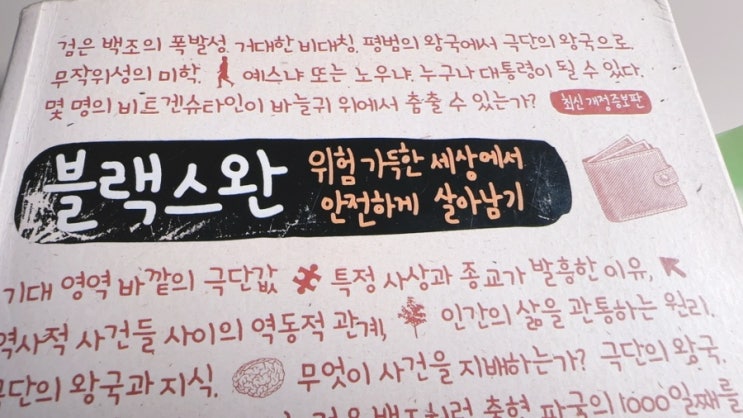 검은 백조의 폭발성. 거대한 비대칭. 평범의 왕국에서 극단의 왕국으로.
무작위성의 미학. 예스냐 또는 노우냐. 누구나 대통령이 될 수 있다.
몇 명의 비트겐슈타인이 바늘귀 위에서 춤출 수 있는가? 최신 개정증보판
블랙스완
위험 가득한 세상에서
안전하게 살아남기
기대 영역 바깥의 극단값 특정 사상과 종교가 발흥한 이유,
역사적 사건들 사이의 역동적 관계, 인간의 삶을 관통하는 원리.
극단의 왕국과 지식. 무엇이 사건을 지배하는가? 극단의 왕국.
검은 백조처럼 출현 파국의 1000일째를